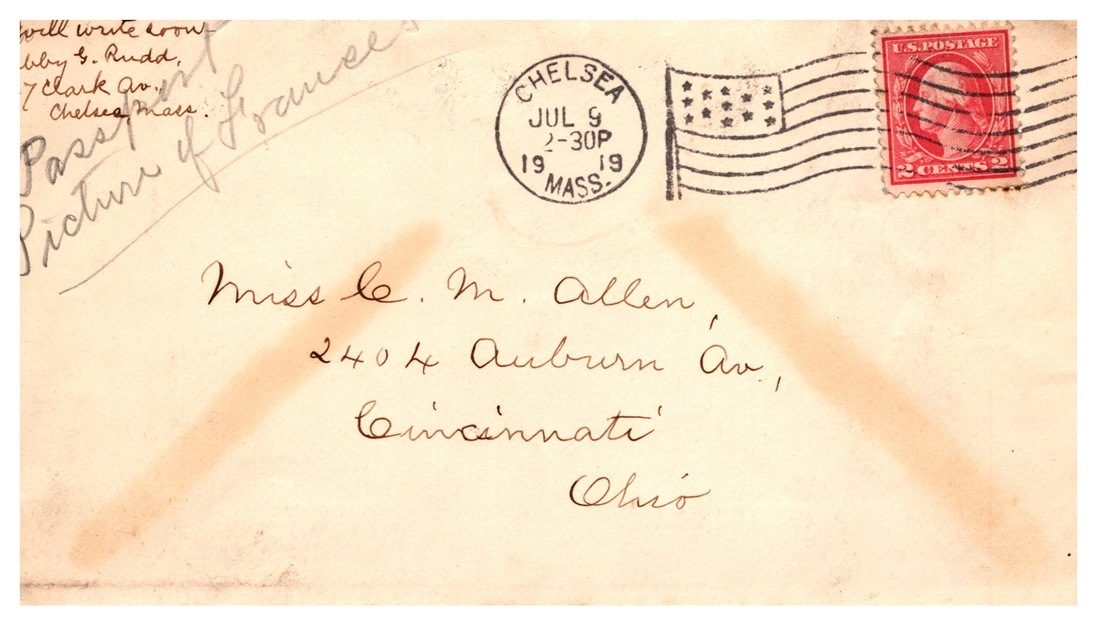 will write soon
bby G. Rudd,
7 Clark Av.,
Chelsea, Mass.
Passport
Picture of Frances
CHELSEA
JUL 9
2-30P
19 19
MASS.
U.S. POSTAGE
2 CENTS 2
Miss C. M. Allen,
2404 Auburn Av.,
Cincinnati
Ohio